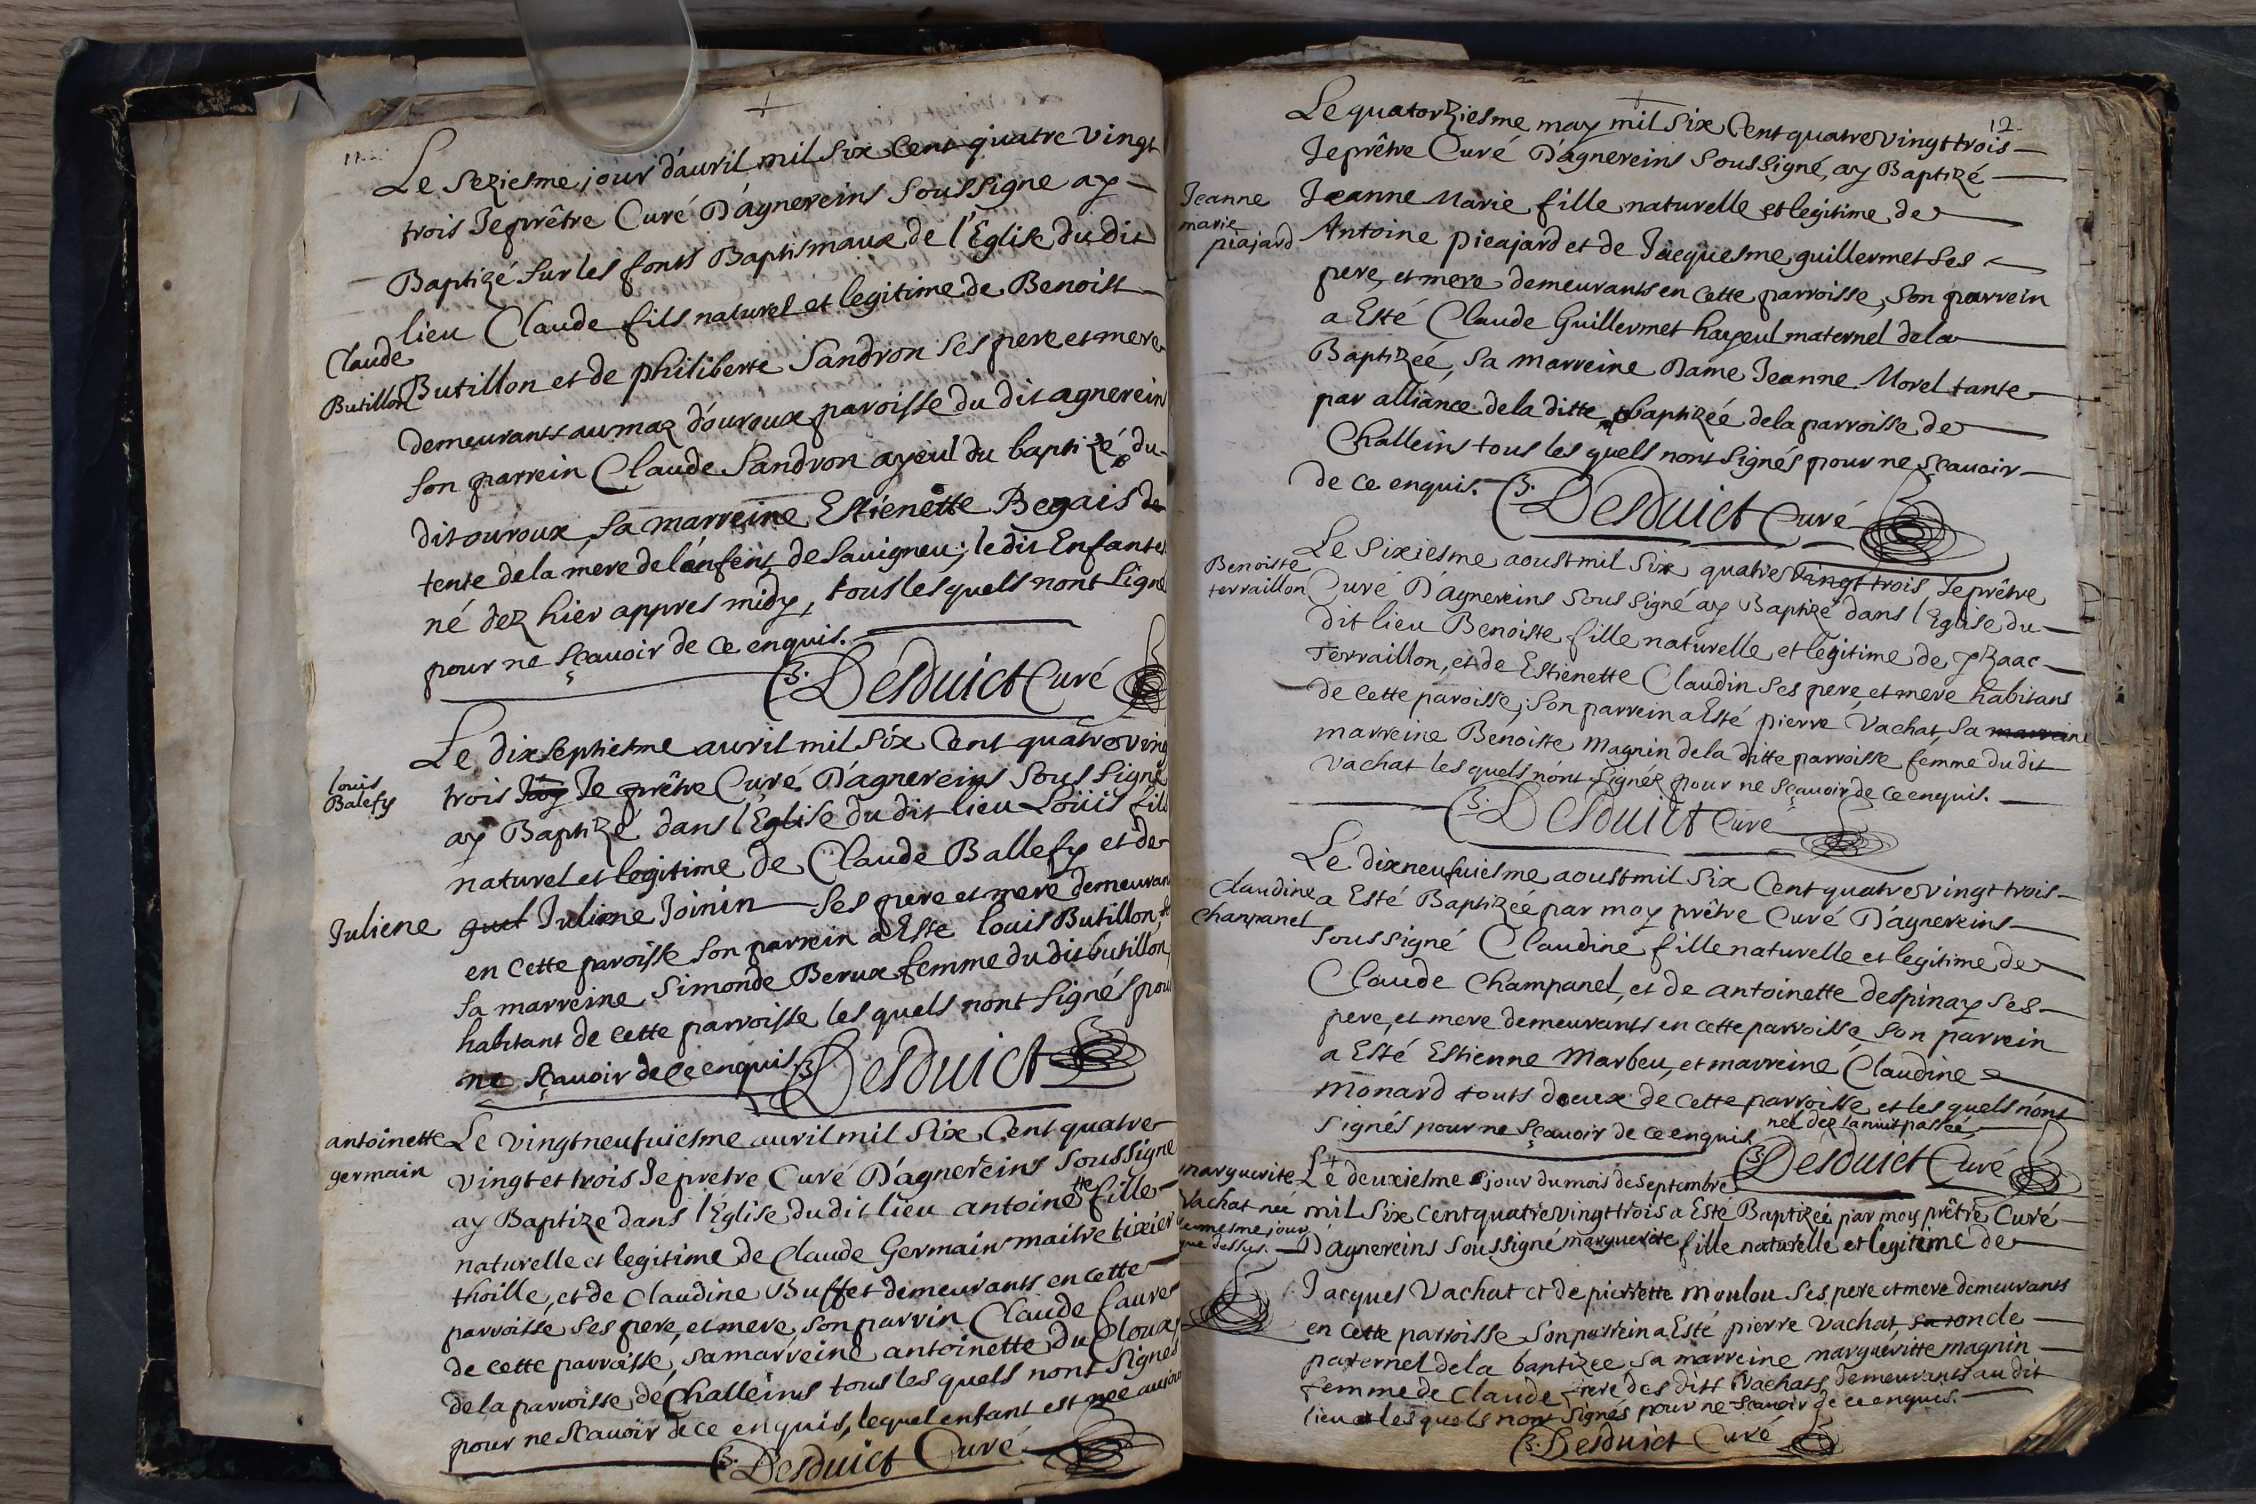 11.
Le Seziesme jour d'auril mil Six cent quatre vingt
trois Je prêtre Curé D'agnereins Soussigne ay
Baptizé sur les fonts Baptismaux de l'Eglise du dit
lieu Claude fils naturel et legitime de Benoist
Claude
Butillon
Butillon et de philiberte Sandron ses pere et mere
demeurants au maz d'ouroux paroisse du dit agnerein
son parrein Claude Sandron ayeul du baptizé, du
dit ouroux, sa marreine Estienette Begais de
tente de la mere de l'enfent de Sauigneu; le dit Enfant est
né dez hier appres midy, tous les quels n'ont Signé
pour ne sçauoir de ce enquis.
B. Desduict Curé
Le dixseptiesme auril mil six Cent quatre ving
louis
Balefy
trois Je prêtre Curé D'agnereins Sous signé
ay Baptizé dans l'Eglise du dit lieu Loüis fils
naturel et legitime de Claude Ballefy et de
Juliene
Juliene Joinin ses pere et mere demeurant
en cette paroisse son parrein a Esté louis Butillon, et
sa marreine Simonde Berux femme du dit butillon,
habitant de cette parroisse les quels n'ont signés pour
ne sçauoir de ce enquis. B. Desduict
antoinette
germain
Le vingtneufuiesme auril mil Six Cent quatre
vingt et trois Je pretre Curé D'agnereins Soussigne
ay Baptize dans l'Eglise du dit lieu antoinette fille
naturelle et legitime de Claude Germain maitre tixier
thoille, et de Claudine Buffet demeurants en cette
parroisse ses pere, et mere, son parrin Claude faure
de cette parroisse, sa marreine antoinette du Cloux,
de la parroisse de Challeins tous les quels n'ont signés
pour ne scauoir de ce enquis, lequel enfant est nee aujour
B. Desduict Curé
12.
Le quatorziesme may mil Six Cent quatre vingt trois
Je prêtre Curé D'agnereins Soussigné, ay Baptizé
Jeanne
marie
piajard
Jeanne Marie fille naturelle et legitime de
Antoine pieajard et de Jacquesme guillermet ses
pere, et mere demeurants en cette parroisse, son parrein
a Esté Claude Guillermet hayeul maternel de la
Baptizeé, sa marreine Dame Jeanne Morel tante
par alliance de la ditte baptizeé de la parroisse de
Challeins tous les quels n'ont signés pour ne sçauoir
de ce enquis. B. Desduict Curé
Benoiste
terraillon
Le Sixiesme aoust mil Six quatre vingt trois, Je prêtre
Curé D'agnereins Sous signé ay Baptizé dans l'Eglise du
dit lieu Benoiste fille naturelle et legitime de yzaac
Terraillon, et de Estienette Claudin ses pere, et mere habitans
de cette paroisse; son parrein a Esté pierre Vachat, sa marreine
marreine Benoiste Magnin de la ditte parroisse femme du dit
vachat les quels n'ont signez pour ne sçauoir de ce enquis.
B. Desduict Curé
Le dixneufuiesme aoust mil Six Cent quatre vingt trois
Claudine
Champanel
a Esté Baptizeé par moy prêtre Curé D'agnereins
soussigné Claudine fille naturelle et legitime de
Claude Champanel, et de antoinette despinay ses
pere, et mere demeurants en cette parroisse, son parrein
a Esté Estienne Marbeu, et marreine Claudine
Monard touts deeux de cette parroisse et les quels n'ont
signés pour ne sçauoir de ce enquis neé dez la nuit passeé,
B. Desduict Curé
marguerite
Vachat neé
le mesme jour
que dessus.
Le deuxiesme jour du mois de Septembre
mil Six cent quatre vingt trois a Esté Baptizeé par moy prêtre Curé
D'agnereins Soussigné marguerite fille naturelle et legitime de
Jacques Vachat et de pierrette Moulou ses pere et mere demeurants
en cette parroisse son parrein a Esté pierre Vachat, sa roncle
paternel de la baptizee, sa marreine margueritte magnin
femme de Claude frere des ditt Vachats, demeurants au dit
lieu et les quels n'ont signés pour ne scauoir de ce enquis.
B. Desduict Curé